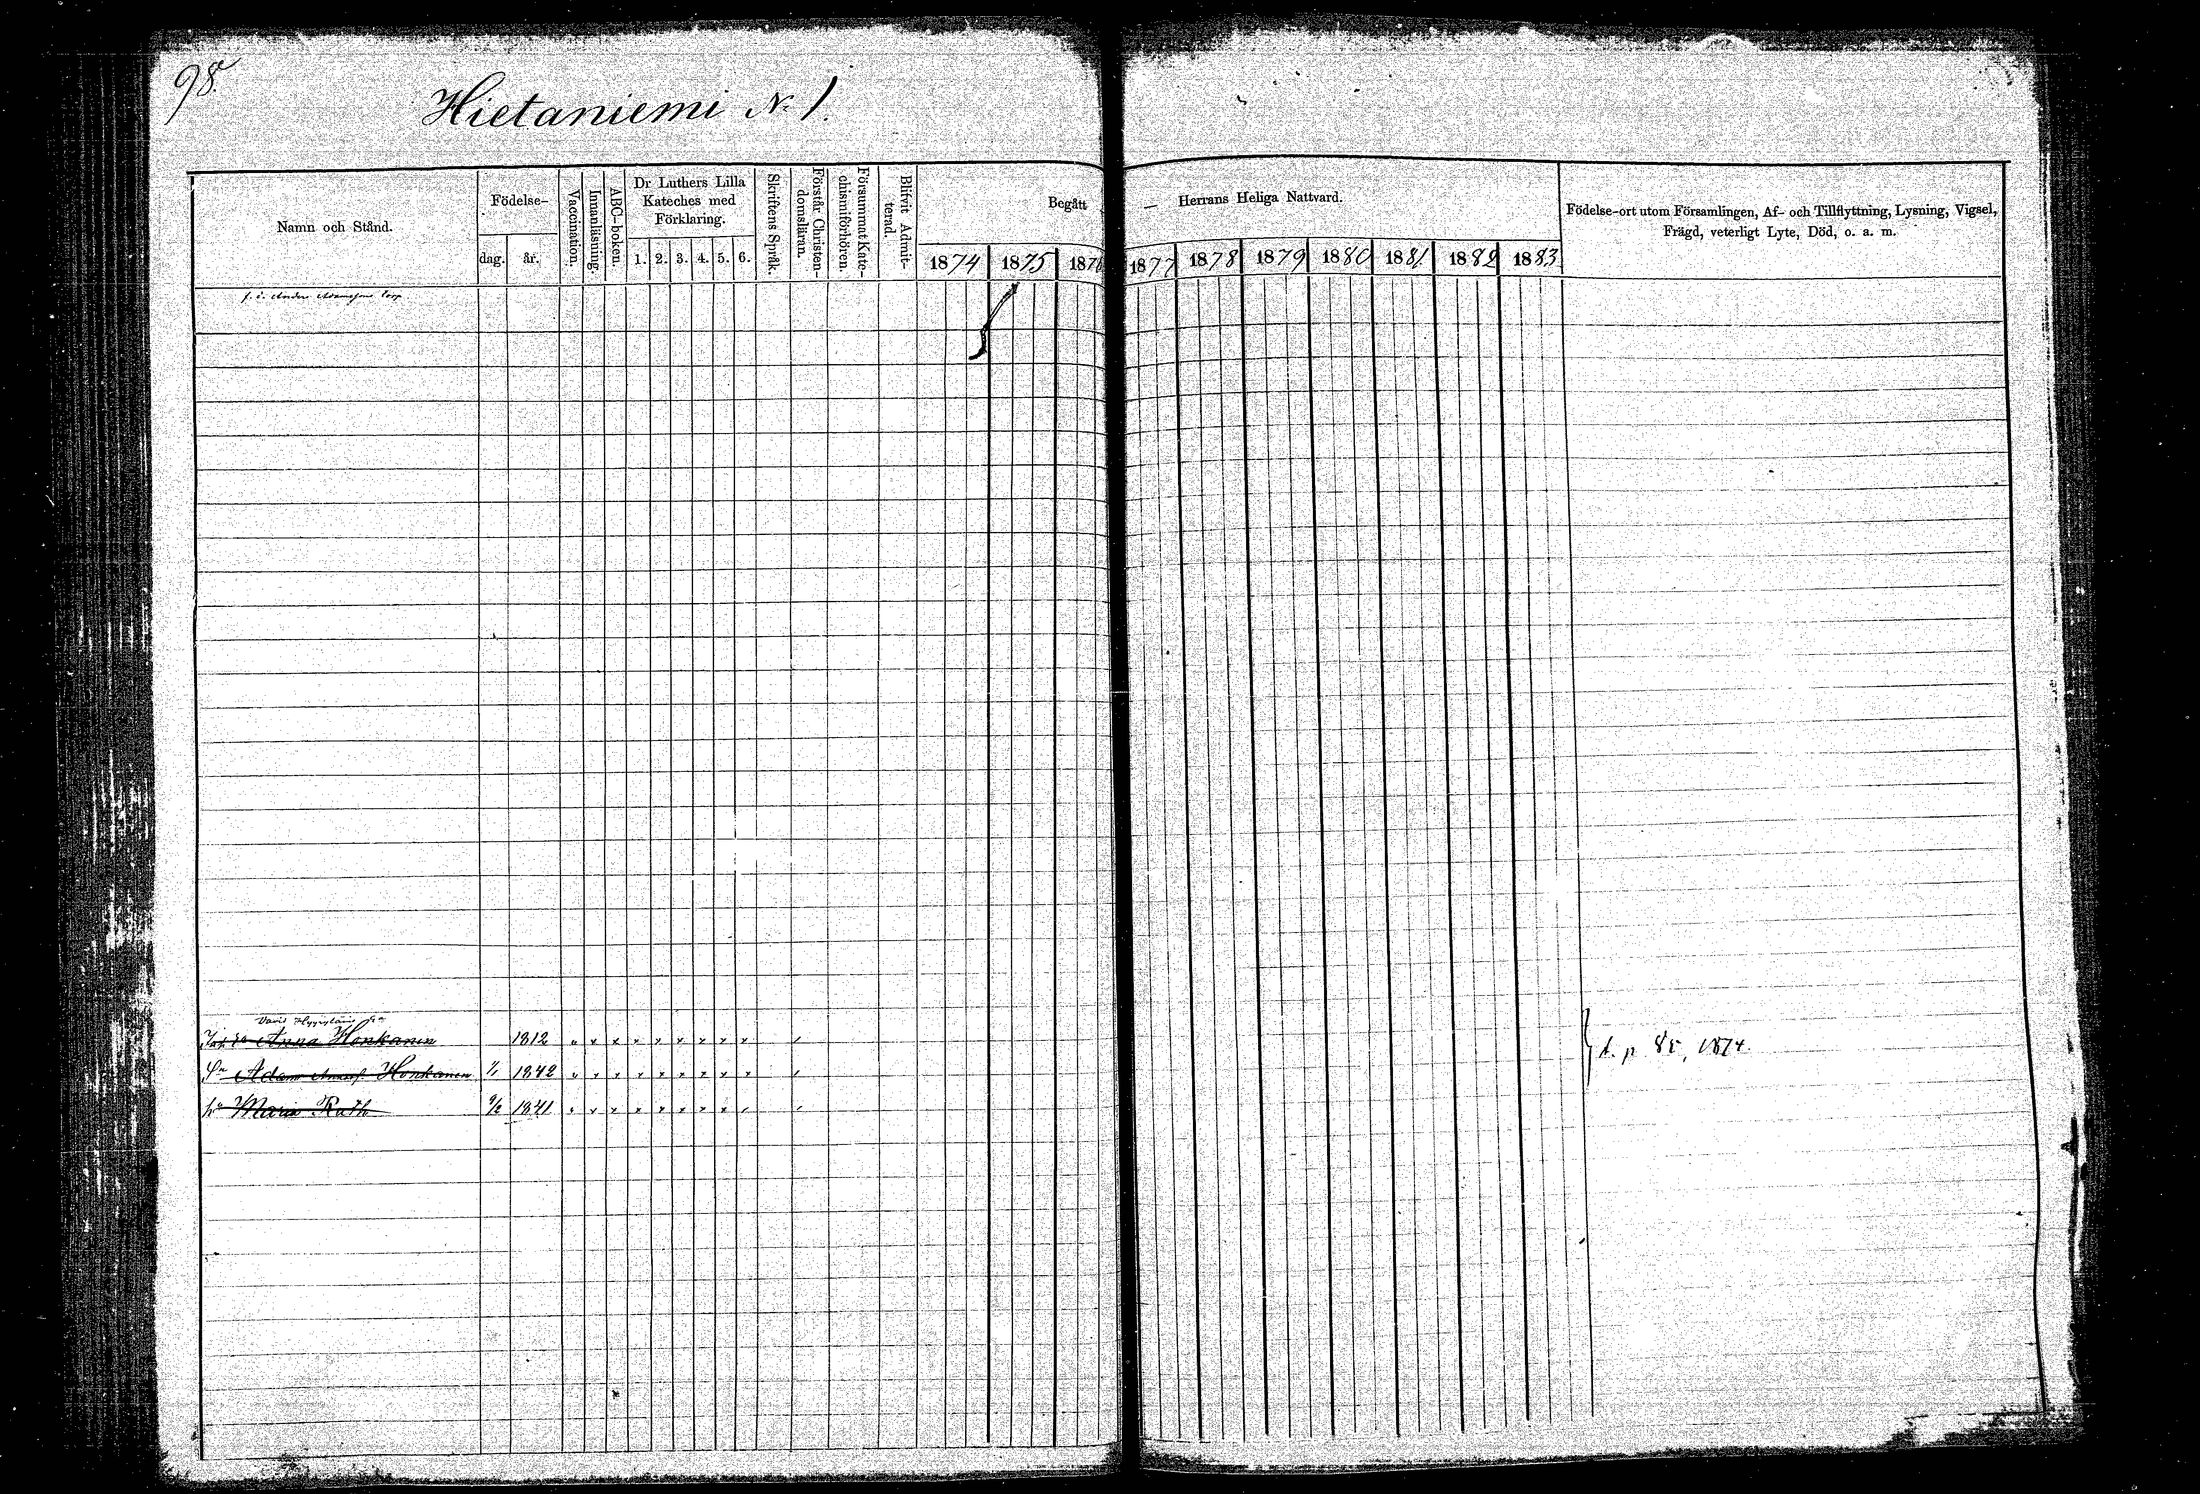 98.
Hietaniemi № 1.
Namn och Stånd.
Födelse-
dag. år.
Vaccination.
Innanläsning.
ABC-boken.
Dr Luthers Lilla
Kateches med
Förklaring.
1. 2. 3. 4. 5. 6.
Skriftens Språk.
Förstår Christen-
domsläran.
Försummat Kate-
chismiförhören.
Blifvit Admit-
terad.
Begått — Herrans Heliga Nattvard.
1874 1875 1876 1877 1878 1879 1880 1881 1882 1883
Födelse-ort utom Församlingen, Af- och Tillflyttning, Lysning, Vigsel,
Frägd, veterligt Lyte, Död, o. a. m.
Anders Adamssons torp
David
Anna Honkanen 1812
Sn Adam Honkanen 1/1 1842
hu Maria Ruth 9/2 1841
p 85, 1874.